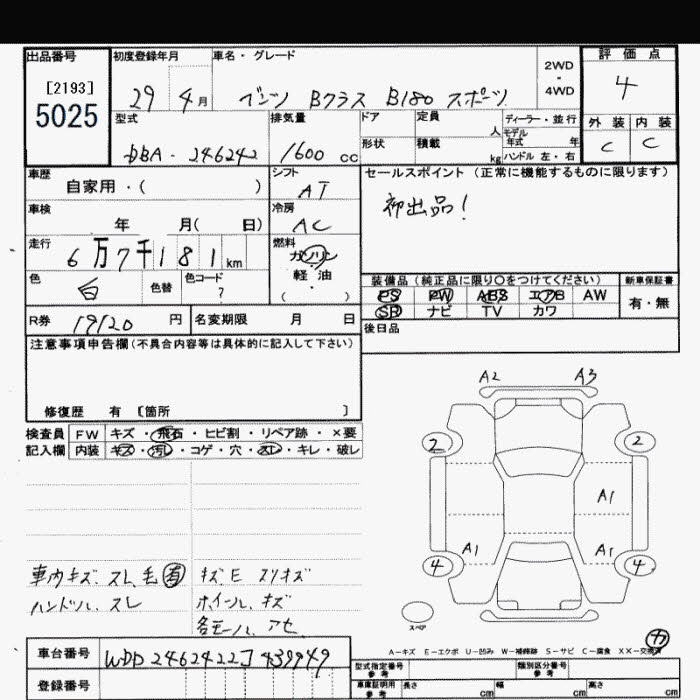 出品番号
[2193]
5025
初度登録年月
29 4月
車名・グレード
ベンツ Bクラス B180 スポーツ
2WD
・
4WD
評価点
4
外装 内装
C C
型式
DBA-246242
排気量
1600 cc
ドア
定員
人
形状
積載
kg
ディーラー・並行
モデル
年式 年
ハンドル 左・右
車歴
自家用・( )
シフト
AT
車検
年 月( 日)
冷房
AC
走行
6万7千181km
燃料
ガソリン
軽油
( )
色
白
色替
色コード
?
セールスポイント(正常に機能するものに限ります)
初出品!
装備品(純正品に限り○をつけてください)
PS PW ABS エアB AW
SR ナビ TV カワ
新車保証書
有・無
後日品
R券
19120 円
名変期限 月 日
注意事項申告欄(不具合内容等は具体的に記入して下さい)
修復歴 有 [箇所 ]
検査員
記入欄
FW キズ・飛石・ヒビ割・リペア跡・×要
内装 キズ・汚れ・コゲ・穴・スレ・キレ・破レ
車内キズ、スレ、毛有
ハンドル、スレ
キズE スリキズ
ホイール、キズ
各モール、アセ
A2 A3
2 2
A1
A1 A1
4 4
スペア
カ
A-キズ E-エクボ U-凹み W-補修跡 S-サビ C-腐食 XX-交換済
車台番号
WDD2462422J439949
登録番号
型式指定番号
参考
類別区分番号
参考
車庫証明用
参考
長さ cm
幅 cm
高さ cm